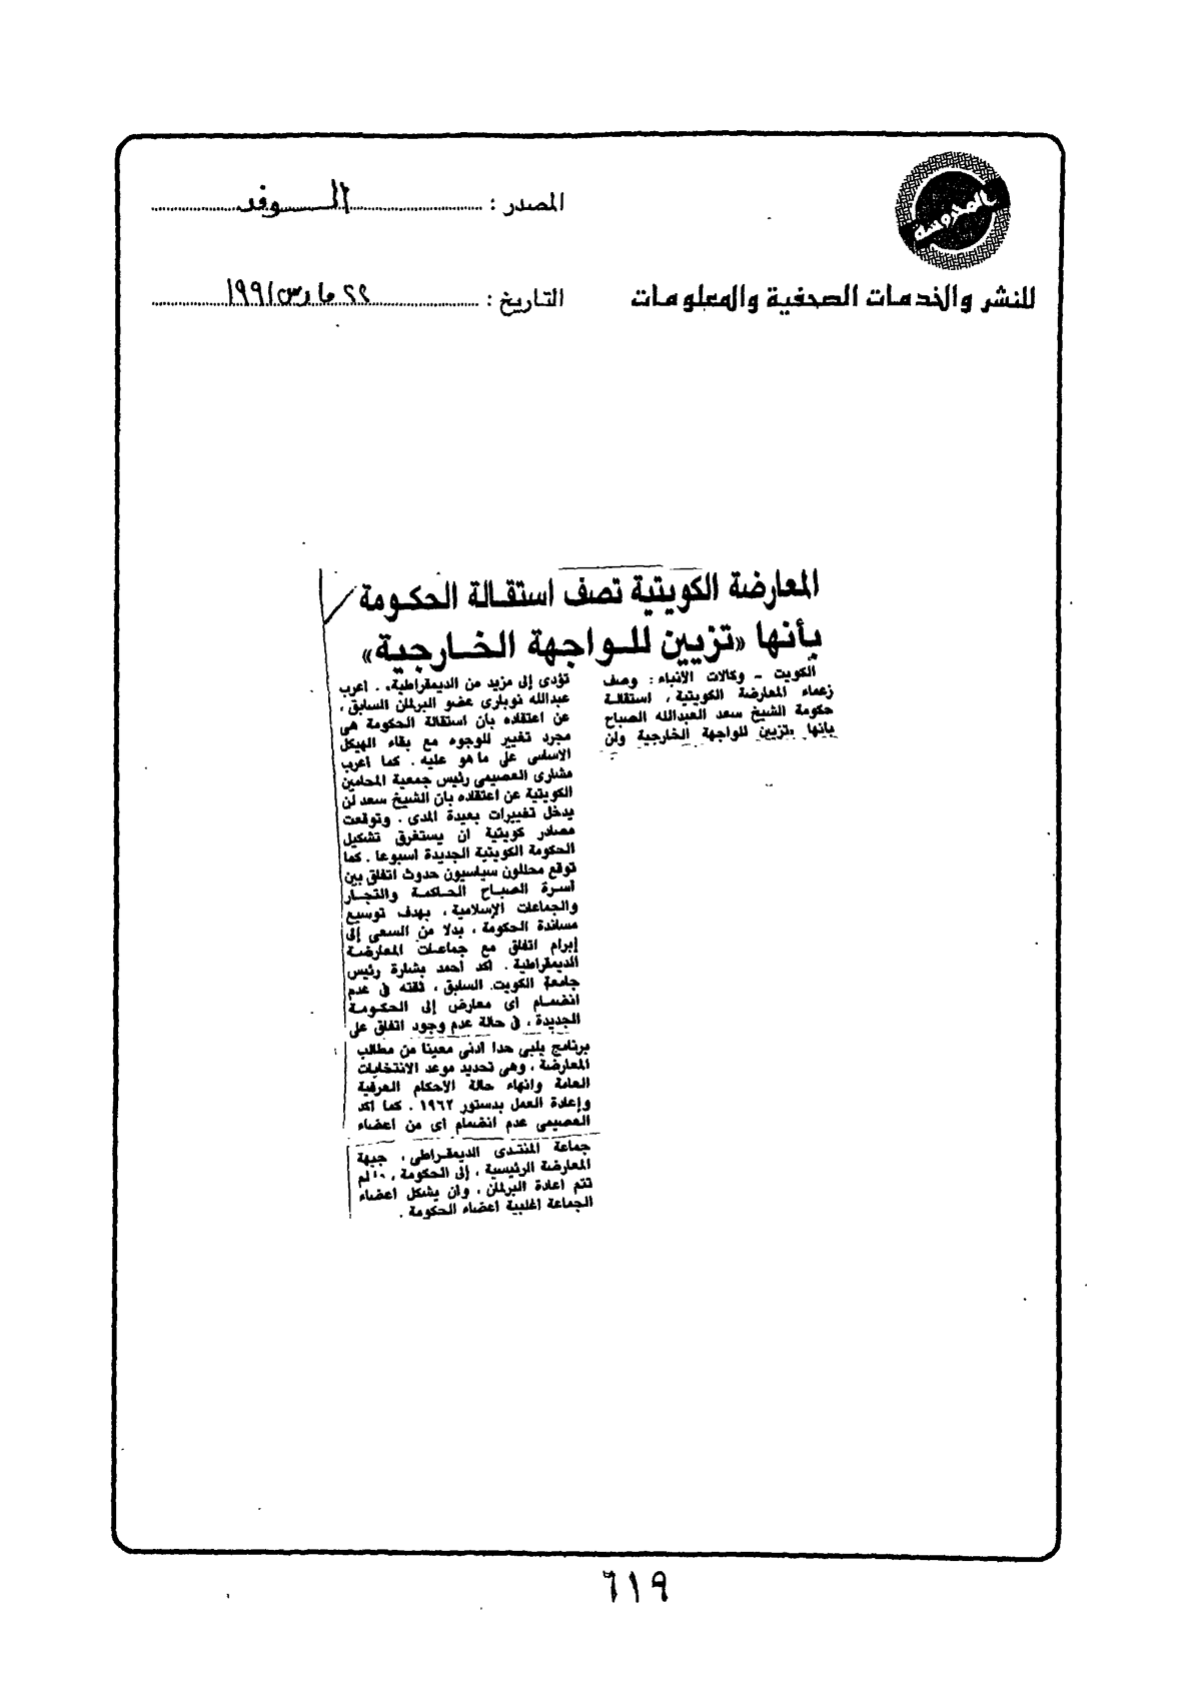 المحروسة
للنشر والخدمات الصحفية والمعلومات
المصدر : الوفد
التاريخ : ٢٢ مارس ١٩٩١
المعارضة الكويتية تصف استقالة الحكومة
بأنها «تزيين للواجهة الخارجية»
الكويت - وكالات الأنباء : وصف
زعماء المعارضة الكويتية ، استقالة
حكومة الشيخ سعد العبدالله الصباح
بأنها «تزيين للواجهة الخارجية ولن
تؤدى إلى مزيد من الديمقراطية» . أعرب
عبدالله نوبارى عضو البرلمان السابق ،
عن اعتقاده بان استقالة الحكومة هى
مجرد تغيير للوجوه مع بقاء الهيكل
الاساسى على ما هو عليه . كما أعرب
مشارى العصيمى رئيس جمعية المحامين
الكويتية عن اعتقاده بان الشيخ سعد لن
يدخل تغييرات بعيدة المدى . وتوقعت
مصادر كويتية ان يستغرق تشكيل
الحكومة الكويتية الجديدة اسبوعا . كما
توقع محللون سياسيون حدوث اتفاق بين
أسرة الصباح الحاكمة والتجار
والجماعات الإسلامية ، بهدف توسيع
مساندة الحكومة ، بدلا من السعى إلى
إبرام اتفاق مع جماعات المعارضة
الديمقراطية . أكد أحمد بشارة رئيس
جامعة الكويت السابق ، ثقته فى عدم
انضمام اى معارض إلى الحكومة
الجديدة ، فى حالة عدم وجود اتفاق على
برنامج يلبى حدا ادنى معينا من مطالب
المعارضة ، وهى تحديد موعد الانتخابات
العامة وانهاء حالة الاحكام العرفية
وإعادة العمل بدستور ١٩٦٢ . كما أكد
العصيمى عدم انضمام اى من اعضاء
جماعة المنتدى الديمقراطى ، جبهة
المعارضة الرئيسية ، إلى الحكومة ، لم
تتم اعادة البرلمان ، وان يشكل اعضاء
الجماعة اغلبية اعضاء الحكومة .
٦١٩